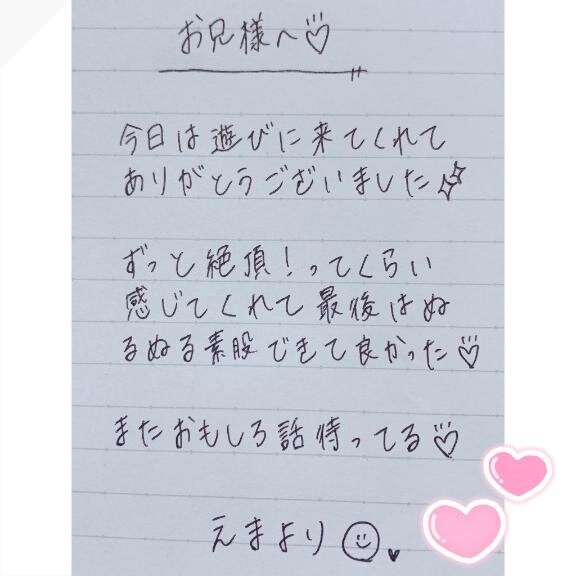 お兄様へ♡
今日は遊びに来てくれて
ありがとうございました✨
ずっと絶頂！ってくらい
感じてくれて最後はぬ
るぬる素股できて良かった♡
またおもしろ話待ってる♡
えまより☺♥